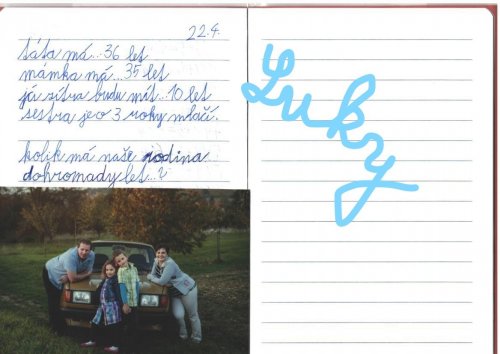 22.4.
táta má...36 let
mamka má...35 let
já zítra budu mít...10 let
sestra je o 3 roky mladší.
kolik má naše rodina
dohromady let...?
Luky